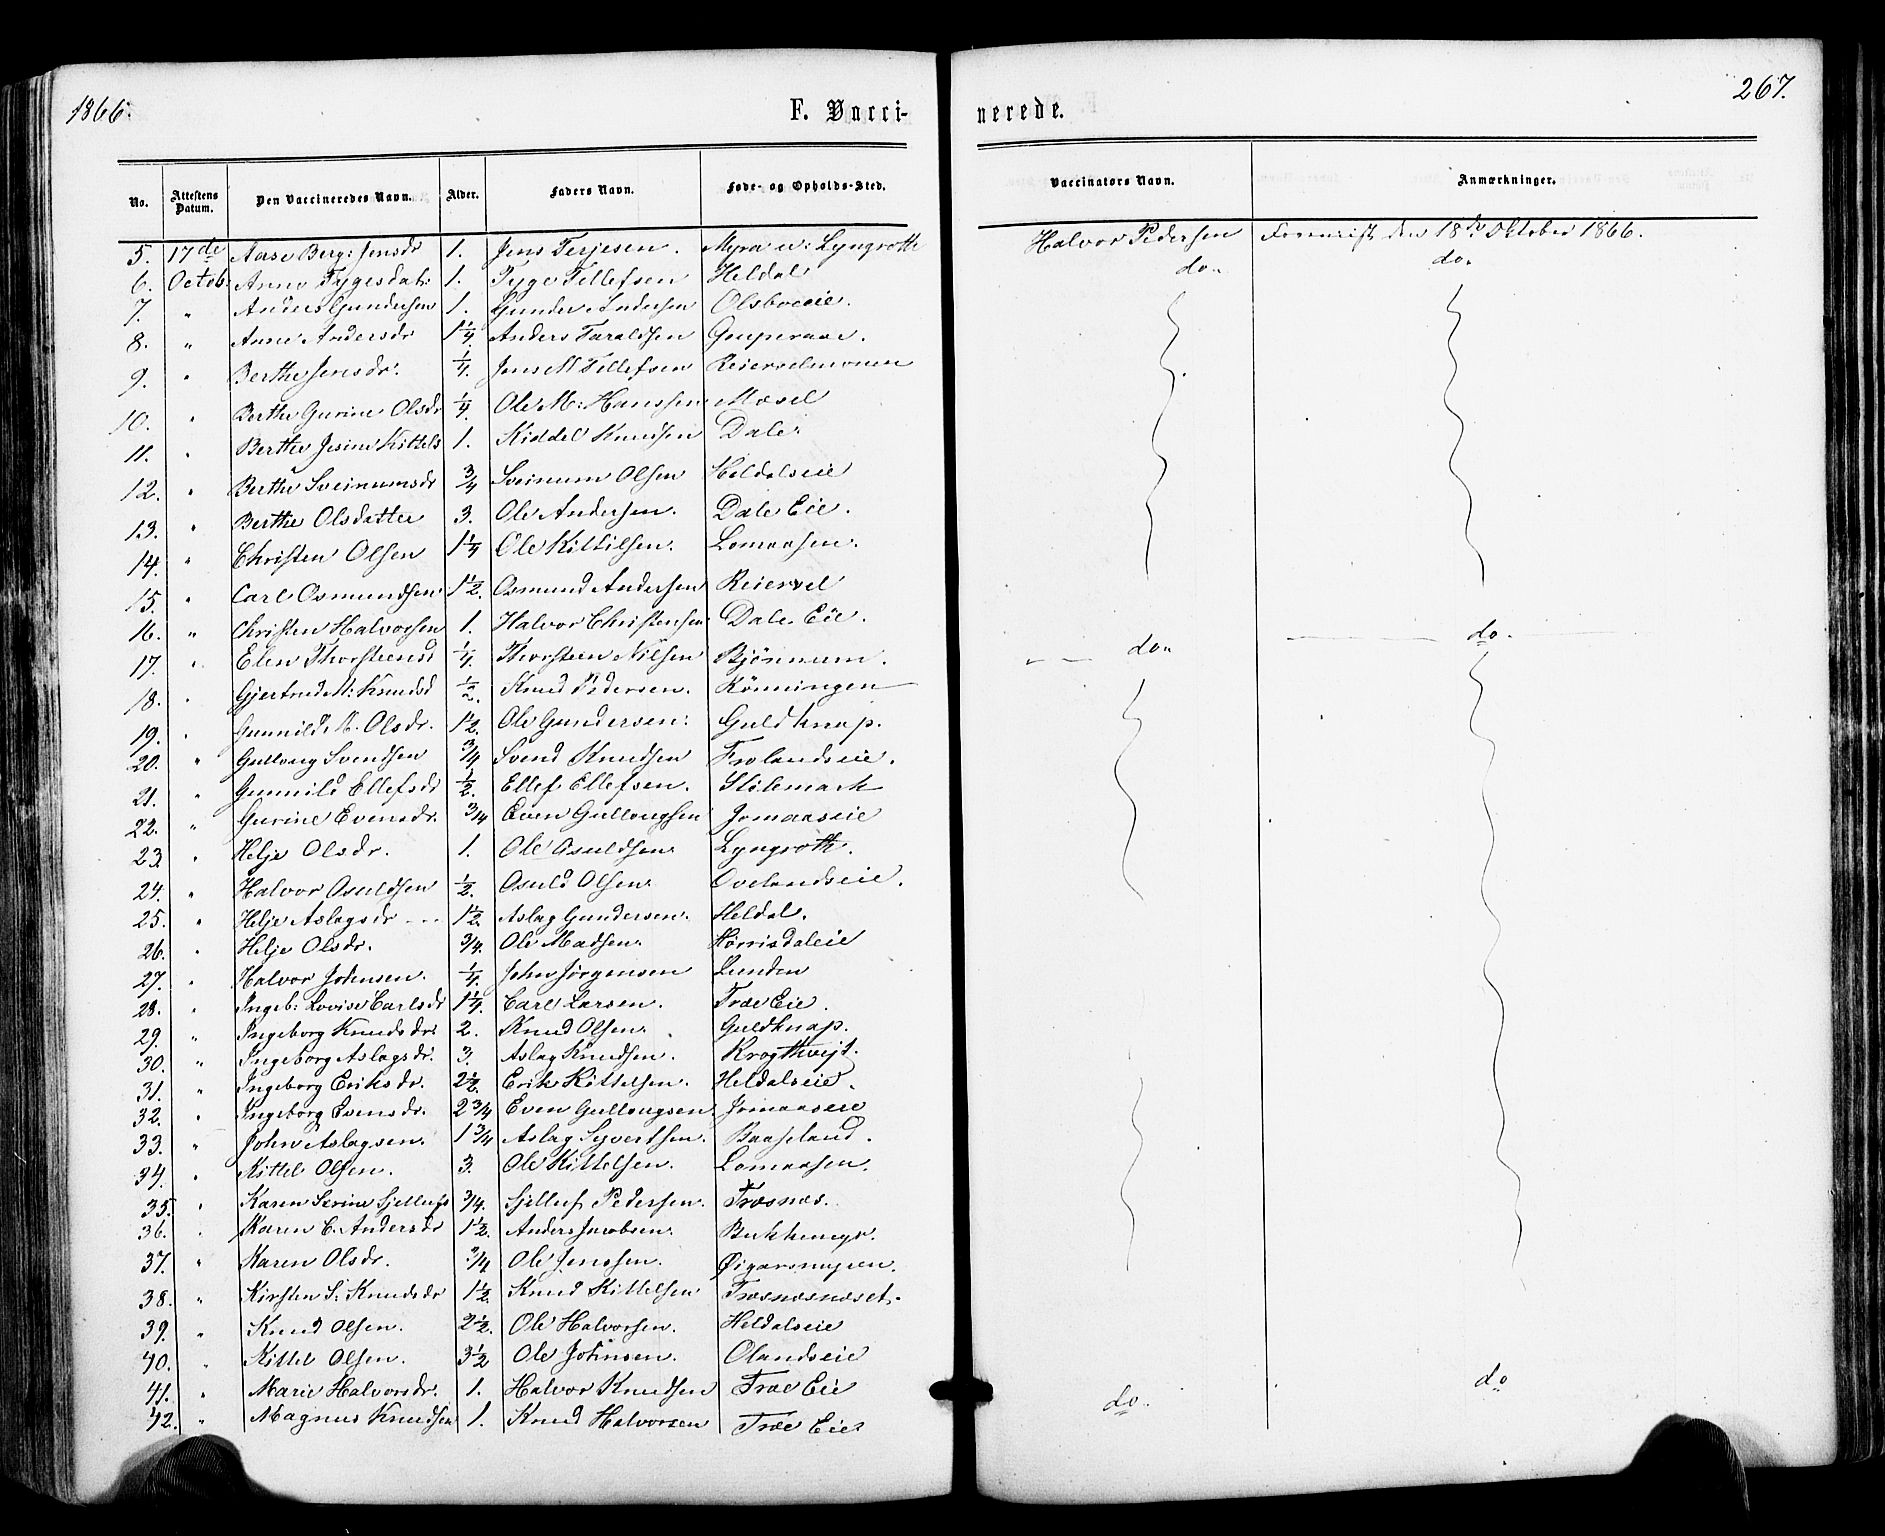 1866.
F. Vacci-
nerede.
267.
No. Attestens Datum. Den Vaccineredes Navn. Alder. Faders Navn. Føde- og Opholds-Sted. Vaccinators Navn. Anmærkninger.
5. 17de Aase Berg: Jensdr 1. Jens Terjesen. Myra u: Lyngroth Halvor Pedersen Foreviist den 18de Oktober 1866.
6. Octob. Anne Tygesdat: 1. Tyge Tellefsen Heldal do. do.
7. " Andres Gundersen 1. Gunder Andersen Olsboeeie.
8. " Anne Andersdr 1 1/4. Anders Taraldsen
9. " Berthe Jensdr. 1/4. Jens M Tellefsen Reierselmonen
10. " Berthe Gurine Olsdr 1/4. Ole M: Hanssen Mosel
11. " Berthe Jesine Kittels 1. Kiddel Knudsen Dale
12. " Berthe Sveinumsdr 3/4 Sveinum Olsen Heldalseie
13. " Berthe Olsdatter 3. Ole Andersen. Dale Eie.
14. " Christen Olsen 1 1/4 Ole Kittilsen. Lomaasen.
15. " Carl Osmundsen 1 1/2. Osmund Andersen Reiersel
16. " Christen Halvorsen 1. Halvor Christensen Dale Eie.
17. " Elen Thorsteensd 1/4. Thorsteen Nilsen Bjönnum. do. do.
18. " Gjertrud M: Knudsd 1/2. Knud Pedersen. Rönningen
19. " Gunnild K. Olsdr. 1 1/2. Ole Gundersen. Guldknap.
20. " Gulloug Svendsen 3/4 Svend Knudsen Frolandseie.
21. " Gunnild Ellefsdr 1/2. Ellef Ellefsen. Stölemark
22. " Gurine Evensdr. 3/4 Even Gullougsen Jomaaseie
23. " Helje Olsdr. 1. Ole Osuldsen Lyngroth.
24. " Halvor Osuldsen 1/2. Osuld Olsen. Ovelandseie.
25. " Helje Aslagsdr 1 1/2. Aslag Gundersen. Heldal.
26. " Helje Olsdr. 3/4. Ole Madsen. Hörrisdaleie
27. " Halvor Johnsen. 1/4. John Jörgensen Lunden
28. " Ingeb: Lovise Carlsdr 1 1/4. Carl Larsen. Træ Eie.
29. " Ingeborg Knudsdr 2. Knud Olsen. Guldknap.
30. " Ingeborg Aslagsdr. 3. Aslag Knudsen. Krogthveit.
31. " Ingeborg Eriksdr. 2 1/2. Erik Kittelsen. Heldalseie.
32. " Ingeborg Evensdr. 2 3/4 Even Gullougsen Jomaaseie
33. " John Aslagsen. 1 3/4 Aslag Syvertsen. Baaseland.
34. " Kittel Olsen. 3. Ole Kittelsen. Lomaasen.
35. " Karen Serine Sjellufs 3/4. Sjelluf Pedersen. Træsnæs.
36. " Karen C. Andersdr 1 1/2. Anders Jacobsen.
37. " Karen Olsdr. 3/4 Ole Jenssen. Øigarsmyren.
38. " Kirsten S. Knudsdr 1 1/2. Knud Kittelsen Træsnæsnæset.
39. " Knud Olsen. 2 1/2. Ole Halvorsen. Heldalseie
40. " Kittel Olsen. 3 1/2 Ole Johnsen. Olandseie
41. " Marie Halvorsdr. 1. Halvor Knudsen Træ Eie do. do
42. " Magnus Knudsen 1. Knud Halvorsen Træ Eie